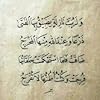 وَلَرُبَّ نَازِلَةٍ يَضِيقُ لَهَا الفَتَى
ذَرْعًا وَعِنْدَ اللهِ مِنْهَا المَخْرَجُ
ضَاقَتْ فَلَمَّا اسْتَحْكَمَتْ حَلَقَاتُهَا
فُرِجَتْ وَكُنْتُ أَظُنُّهَا لَا تُفْرَجُ